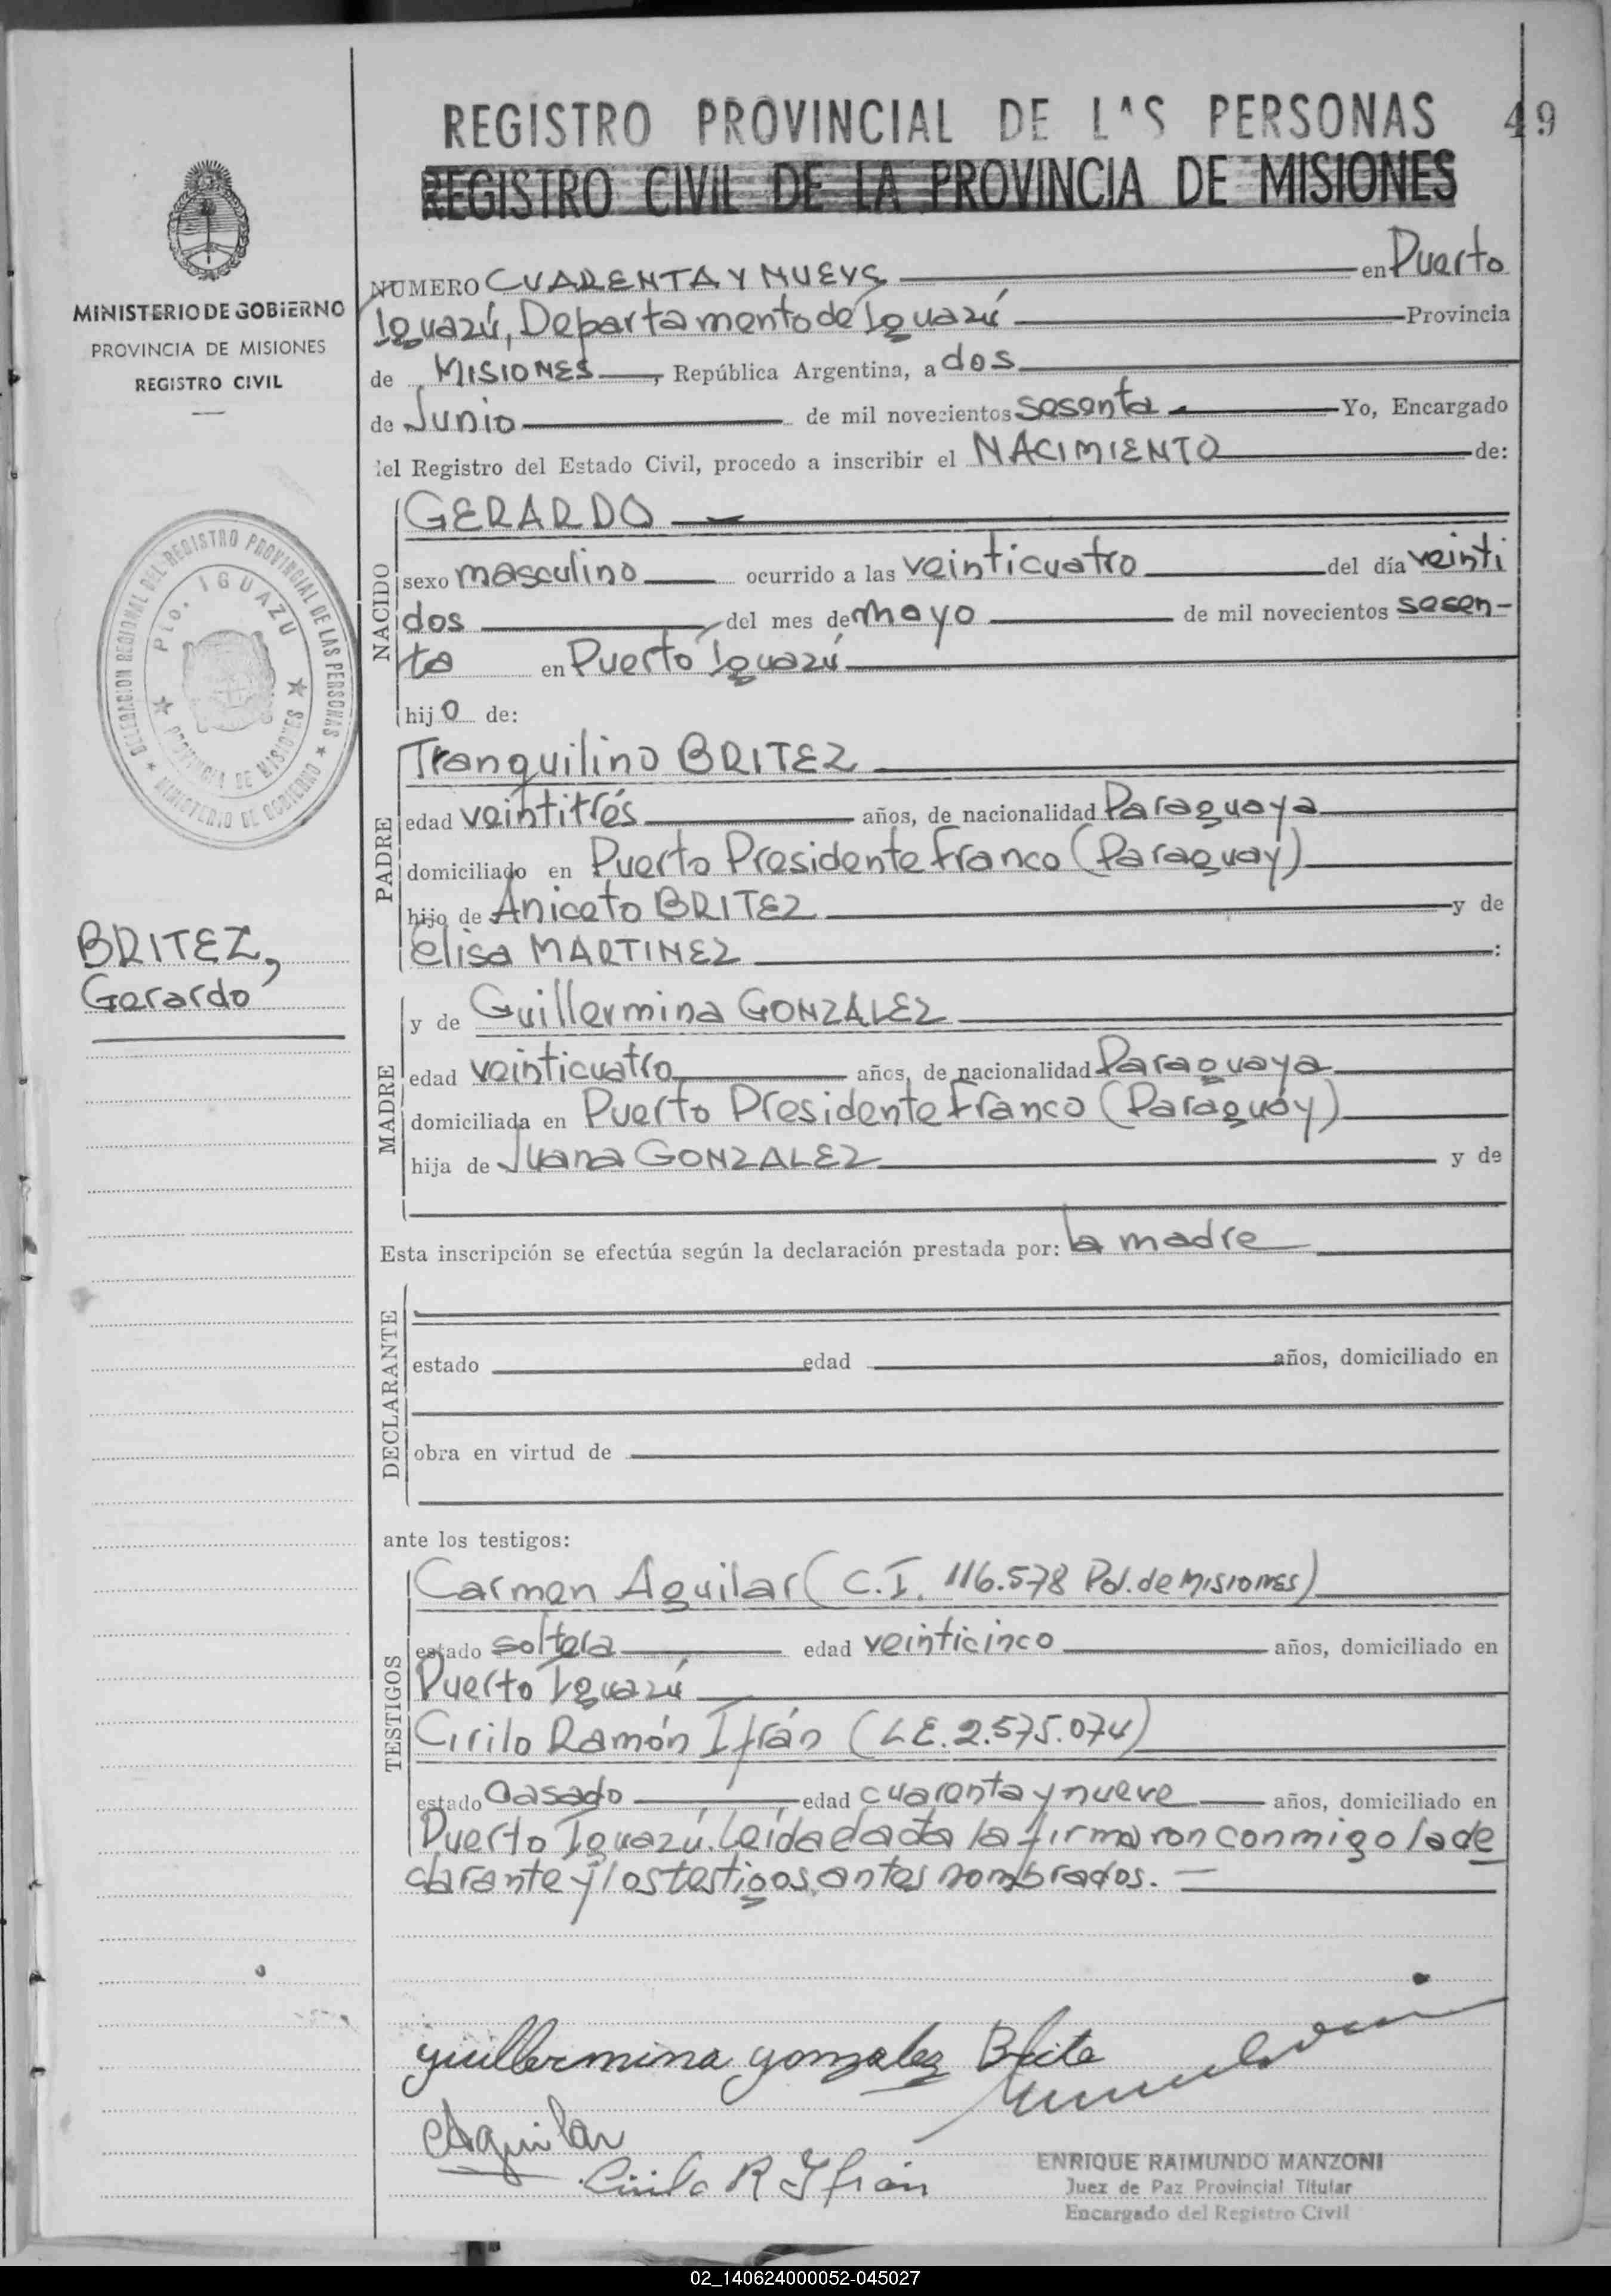 REGISTRO PROVINCIAL DE LAS PERSONAS 49
REGISTRO CIVIL DE LA PROVINCIA DE MISIONES
MINISTERIO DE GOBIERNO
PROVINCIA DE MISIONES
REGISTRO CIVIL
DELEGACION REGIONAL DEL REGISTRO PROVINCIAL DE LAS PERSONAS ★ MINISTERIO DE GOBIERNO ★
Pto. IGUAZU ★ PROVINCIA DE MISIONES ★
BRITEZ,
Gerardo
NUMERO CUARENTA Y NUEVE en Puerto
Iguazú, Departamento de Iguazú Provincia
de MISIONES, República Argentina, a dos
de Junio de mil novecientos sesenta Yo, Encargado
del Registro del Estado Civil, procedo a inscribir el NACIMIENTO de:
NACIDO
GERARDO
sexo masculino ocurrido a las veinticuatro del día veinti
dos del mes de mayo de mil novecientos sesen-
ta en Puerto Iguazú
hijo de:
PADRE
Tranquilino BRITEZ
edad veintitrés años, de nacionalidad Paraguaya
domiciliado en Puerto Presidente Franco (Paraguay)
hijo de Aniceto BRITEZ y de
Elisa MARTINEZ :
MADRE
y de Guillermina GONZALEZ
edad veinticuatro años, de nacionalidad Paraguaya
domiciliada en Puerto Presidente Franco (Paraguay)
hija de Juana GONZALEZ y de
Esta inscripción se efectúa según la declaración prestada por: la madre
DECLARANTE
estado edad años, domiciliado en
obra en virtud de
ante los testigos:
TESTIGOS
Carmen Aguilar (C.I. 116.578 Pol. de MISIONES)
estado soltera edad veinticinco años, domiciliado en
Puerto Iguazú
Cirilo Ramón Ifrán (L.E. 2.575.074)
estado Casado edad cuarenta y nueve años, domiciliado en
Puerto Iguazú. Leída el acta la firmaron conmigo la de
clarante y los testigos antes nombrados.
guillermina gonzalez Brite
Aguilar
Cirilo R Ifrán
ENRIQUE RAIMUNDO MANZONI
Juez de Paz Provincial Titular
Encargado del Registro Civil
02_140624000052-045027